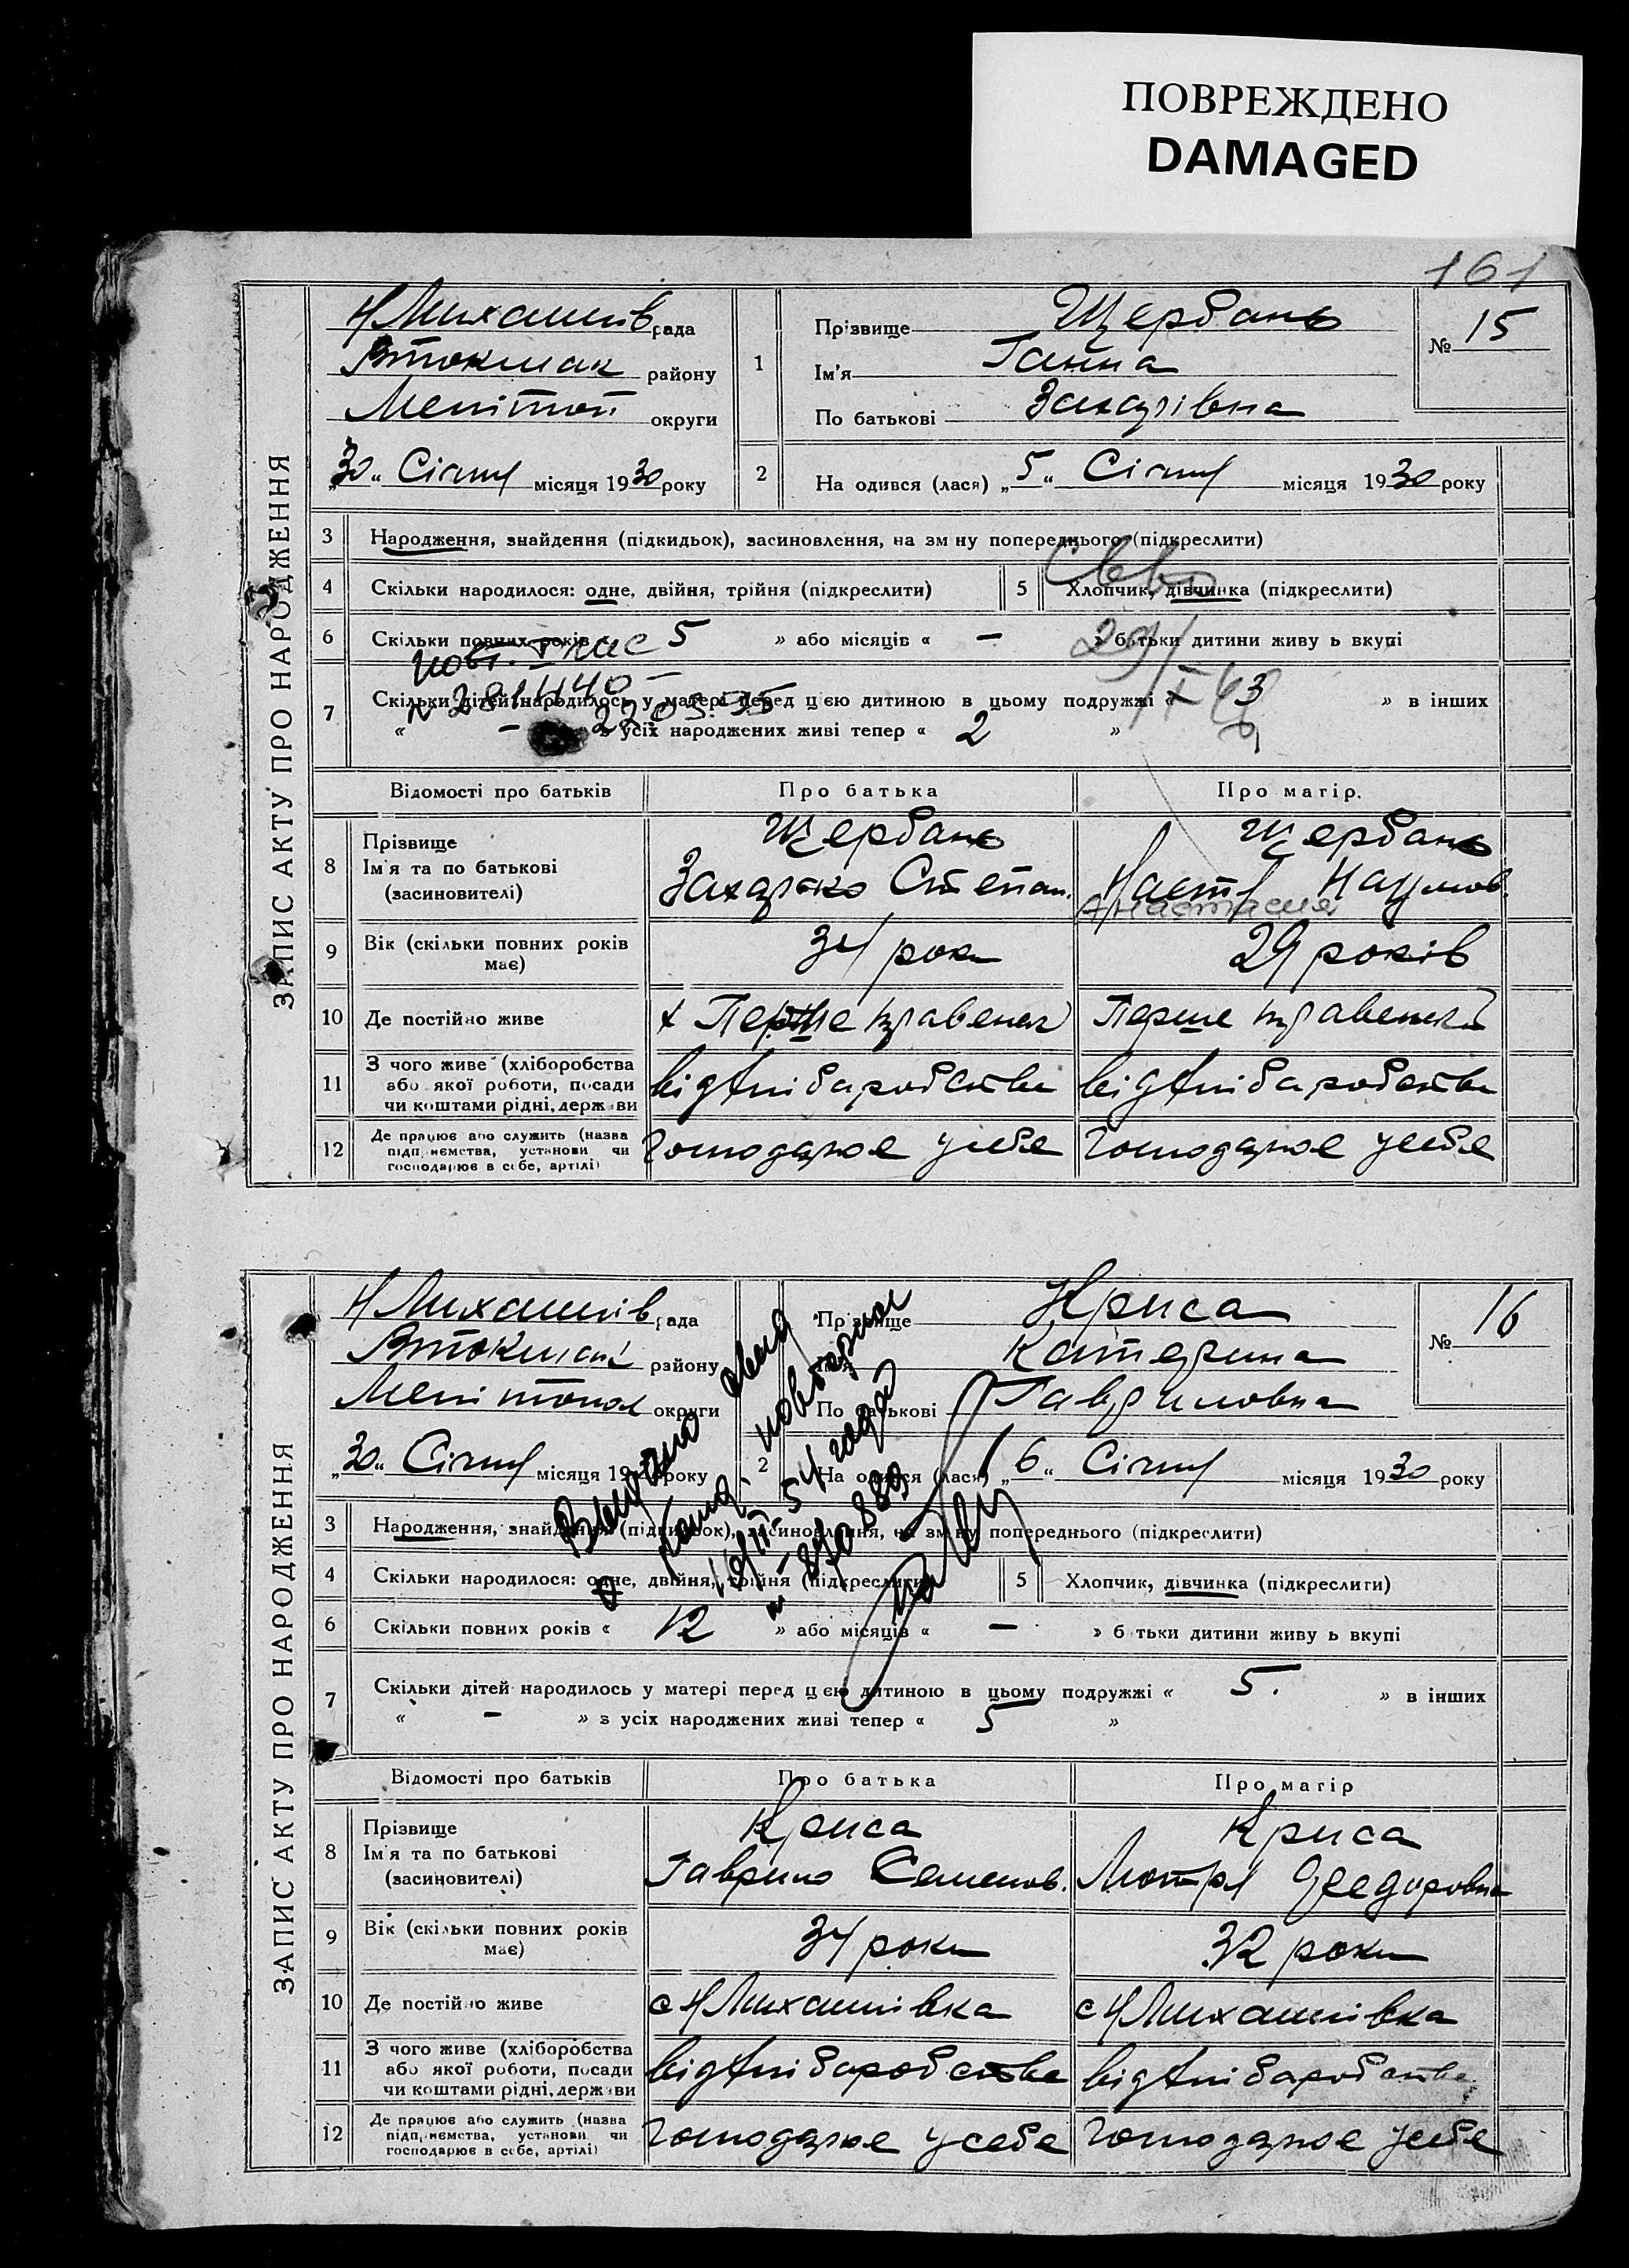 ПОВРЕЖДЕНО
DAMAGED
161
ЗАПИС АКТУ ПРО НАРОДЖЕННЯ
Н Михайлів рада
Втокмак району
Мелітоп округи
„30“ Січня місяця 1930 року
1
Прізвище Щербань
Ім'я Ганна
По батькові Захарівна
№ 15
2 На одився (лася) „5“ Січня місяця 1930 року
3 Народження, знайдення (підкидьок), засиновлення, на зм ну попереднього (підкреслити)
4 Скільки народилося: одне, двійня, трійня (підкреслити)
5 Хлопчик, дівчинка (підкреслити)
6 Скільки повних років « 5 » або місяців « — » батьки дитини живу ь вкупі
7 Скільки дітей народилось у матері перед цією дитиною в цьому подружжі « 3 » в інших
« — » з усіх народжених живі тепер « 2 »
22 03. 55
Відомості про батьків Про батька Про матір.
8 Прізвище
Ім'я та по батькові
(засиновителі)
Щербань
Захарько Степан.
Щербань
Настя Наумов.
Анастасия
9 Вік (скільки повних років має)
34 роки
29 років
10 Де постійно живе
х Перше травеня
Перше травеня
11 З чого живе (хліборобства
або якої роботи, посади
чи коштами рідні, держ ви
від хліборобства
від хліборобства
12 Де працює або служить (назва
підп иємства, установи чи
господарює в себе, артілі)
Господарює у себе
Господарює у себе
ЗАПИС АКТУ ПРО НАРОДЖЕННЯ
Н Михайлів рада
Втокмак району
Мелітопол округи
„30“ Січня місяця 19 року
1
Прізвище Криса
Ім'я Катерина
По батькові Гавриловна
№ 16
2 На одився (лася) „6“ Січня місяця 1930 року
3 Народження, знайдення (підкидьок), засиновлення, на зм ну попереднього (підкреслити)
4 Скільки народилося: одне, двійня, трійня (підкреслити)
5 Хлопчик, дівчинка (підкреслити)
6 Скільки повних років « 12 » або місяців « — » б тьки дитини живу ь вкупі
7 Скільки дітей народилось у матері перед цією дитиною в цьому подружжі « 5. » в інших
« — » з усіх народжених живі тепер « 5 »
Выдано
повторное
54 года
Відомості про батьків Про батька Про матір
8 Прізвище
Ім'я та по батькові
(засиновителі)
Криса
Гаврило Семенов.
Криса
Мотря Феедоровна
9 Вік (скільки повних років має)
34 роки
32 роки
10 Де постійно живе
с Н Михайлівка
с Н Михайлівка
11 З чого живе (хліборобства
або якої роботи, посади
чи коштами рідні, держ ви
від хліборобства
від хліборобства
12 Де працює або служить (назва
підп иємства, установи чи
господарює в себе, артілі)
Господарює у себе
Господарює у себе